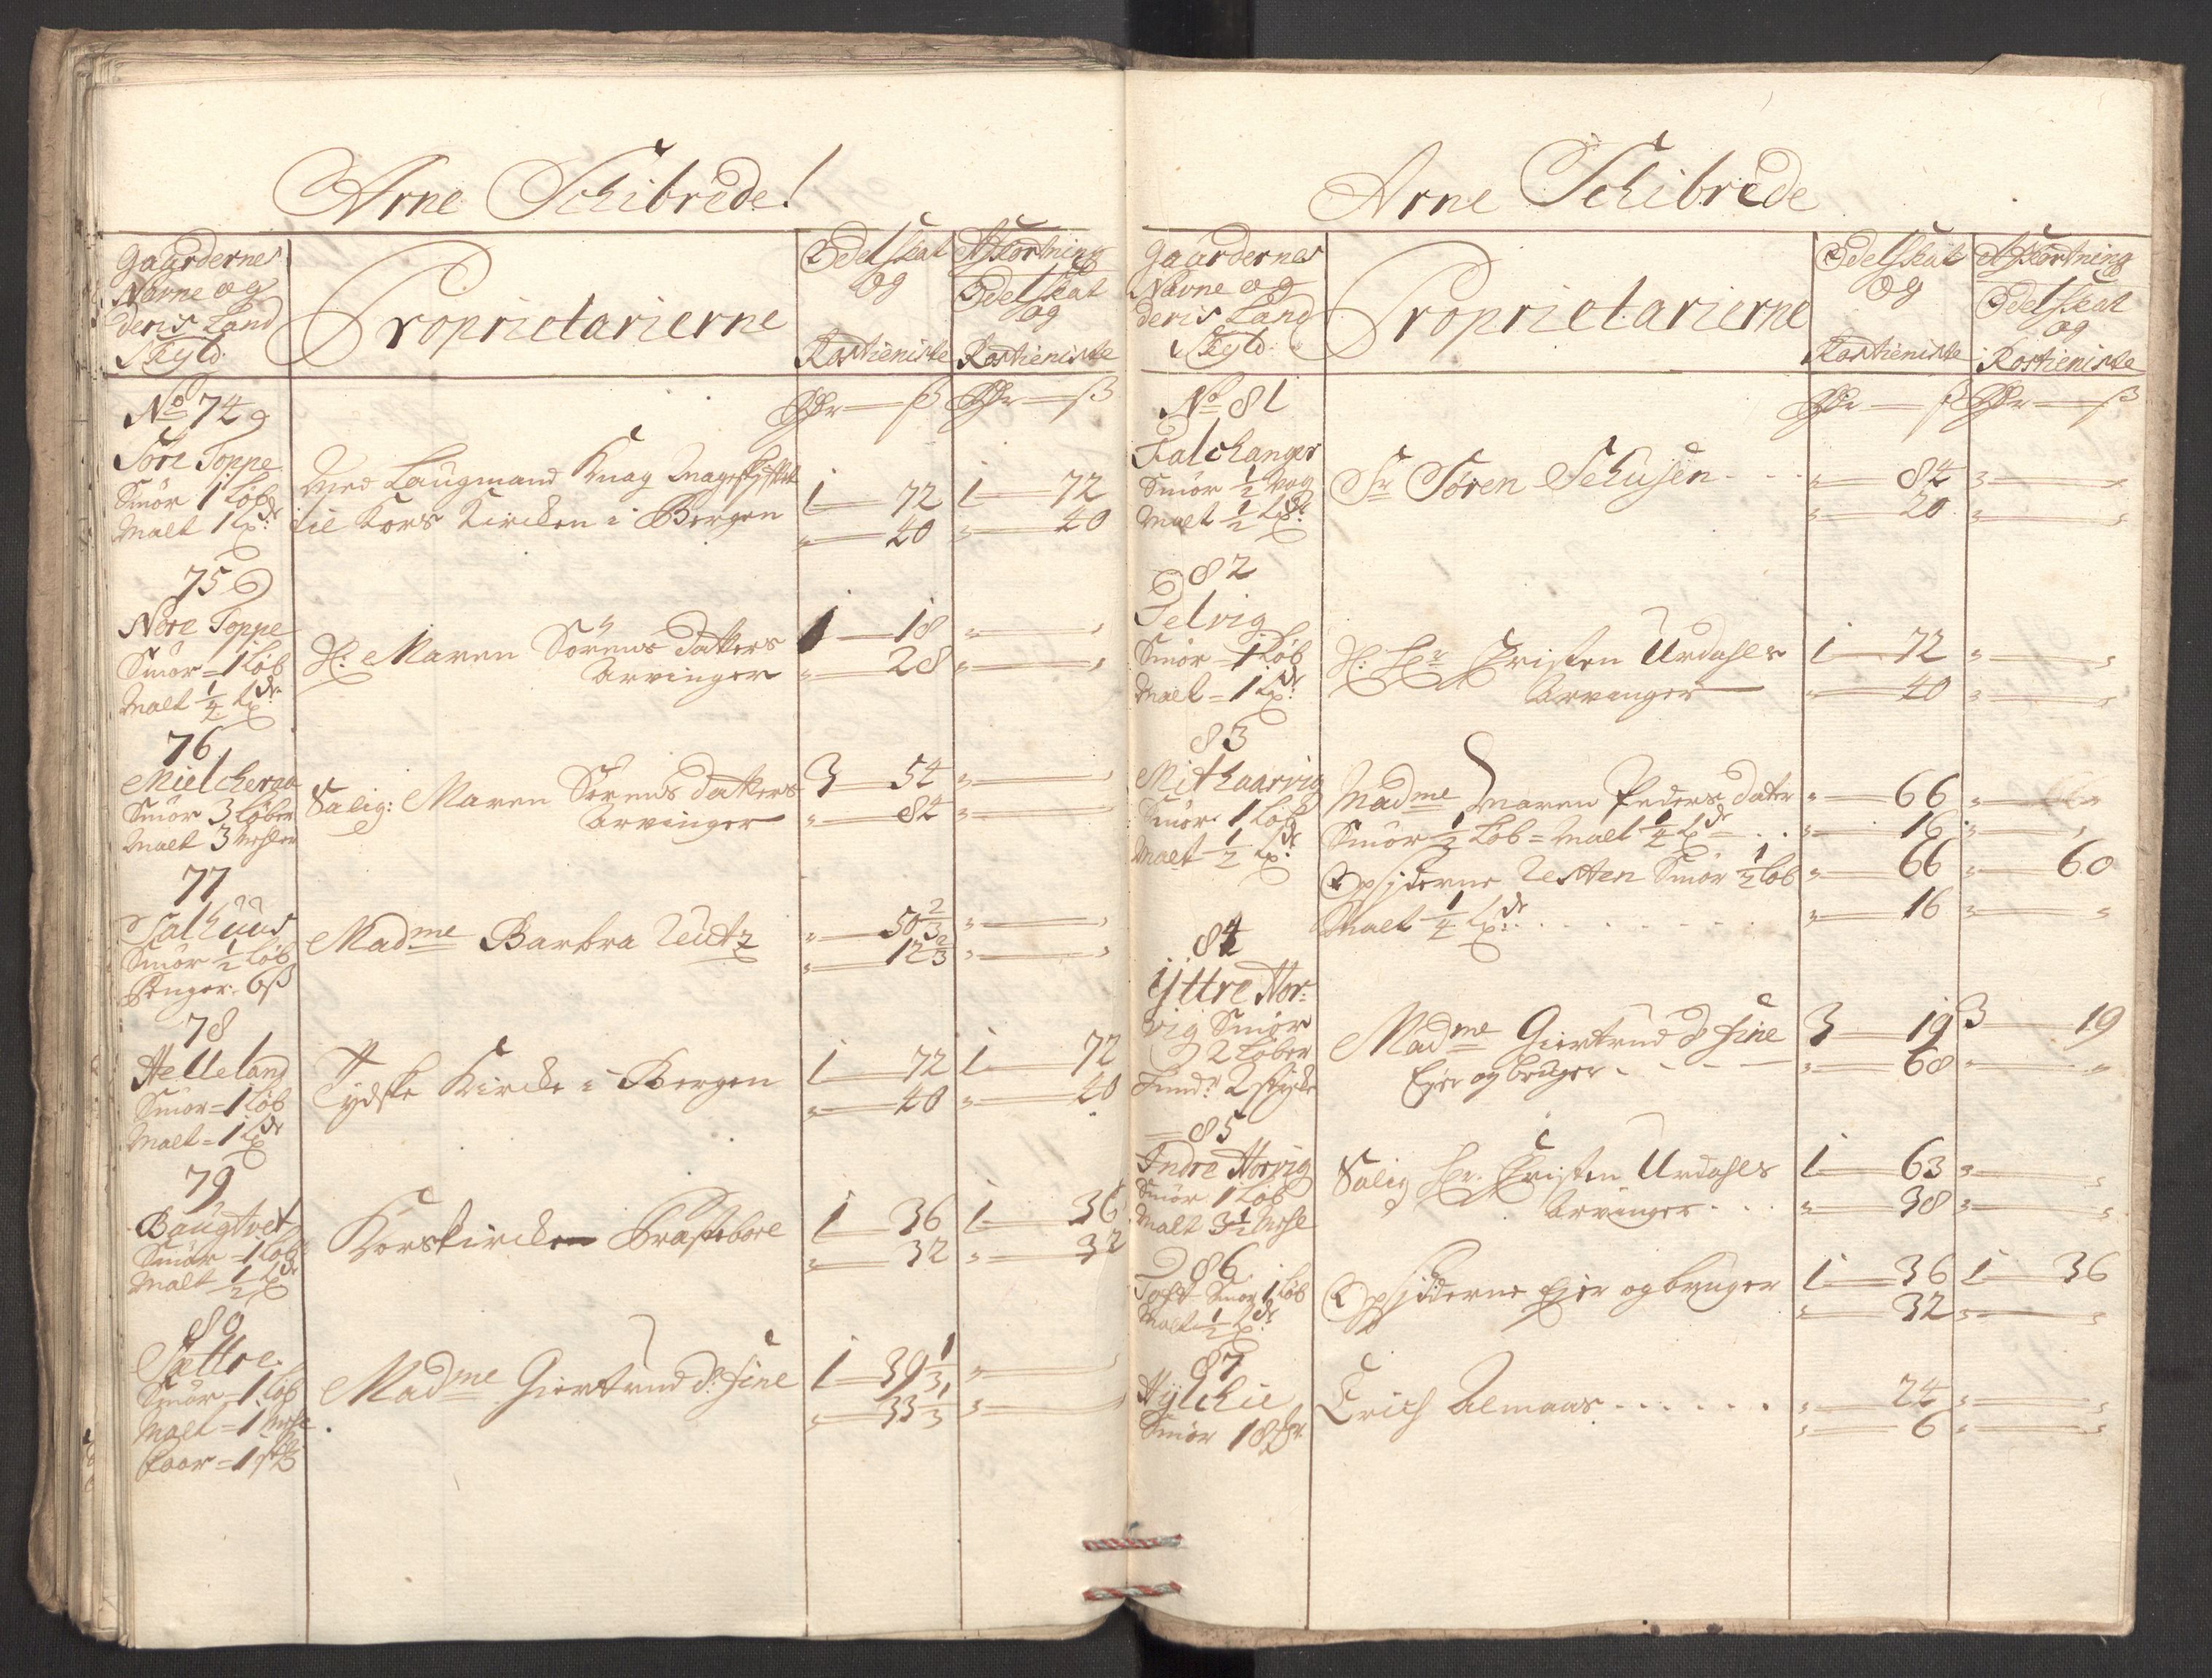 Arne Schibrede!
Gaardernes
Navne og
deris Land
Skyld
Proprietarierne
Odelskat
og
Rostieniste
Afkortning
Odelskat
og
Rostieniste
No 74
Dr ß Dr ß
Søre Toppe
Smør 1 Løb
Malt 1 Lpdr
Med Laugmand Knag Mageskifftet
til Kors Kircken i Bergen
1 72 1 72
" 40 " 40
75
Nore Toppe
Smør = 1 Løb
Malt 1/4 Lpdr
Sl: Maren Sørens datters
Arvinger
1 18 " "
" 28 " "
76
Mielcheraa
Smør 3 Løber
Malt 3 Mehler
Salig: Maren Sørens datters
Arvinger
3 54 " "
" 84 " "
77
Salhuus
Smør 1/2 Løb
Penger. 6ß
Madme Barbra Reutz
" 50 2/3 " "
" 12 2/3 " "
78
Helleland
Smør = 1 Løb
Malt = 1 Lpdr
Tydske Kircke i Bergen
1 72 1 72
" 40 " 40
79
Baugtvet
Smør = 1 Løb
Malt 1/2 Lpdr
Korskircken Præstebore
1 36 1 36
" 32 " 32
80
Sættre
Smør = 1 Løb
Malt = 1 Mehl
Madme Giertrud d. fine
1 39 1/3 " "
" 33 1/3 " "
Arne Schibrede
Gaardernes
Navne og
deris Land
Skyld
Proprietarierne
Odelskat
og
Rostieniste
Afkortning
Odelskat
og
Rostieniste
No 81
Dr ß Dr ß
Falchanger
Smør 1/2 Vog
Malt 1/2 Lpdr
Sr Søren Schusen
" 84 " "
" 20 " "
82
Selvig
Smør = 1 Løb
Malt = 1 Lpdr
Sl: Hr Christen Urdahls
Arvinger
1 72 " "
" 40 " "
83
Mithaarvig
Smør 1 Løb
Malt 1/2 Lpdr
Madme Maren Peders dater
Smør 1/2 Løb = Malt 1/4 Lpdr
Opsiderne Resten Smør 1/2 Løb
Malt 1/4 Lpdr
" 66 " "
" 16 " "
" 66 " 60
" 16 " "
84
Yttre Hor:
vig Smør
2 Løber
2 stycke
Madme Giertrud d fine
Ejer og bruger
3 19 3 19
" 68 " "
85
Indre Horvig
Smør 1 Løb
Malt 3 1/2 Mehl
Salig Hr. Christen Urdahls
Arvinger
1 63 " "
" 38 " "
86
Toft Smør 1 Løb
Malt 1/2 Lpdr
Opsiderne Ejer og bruger
1 36 1 36
" 32 " "
87
Hylchie
Smør 18
Erich Almaas
" 24 " "
" 6 " "